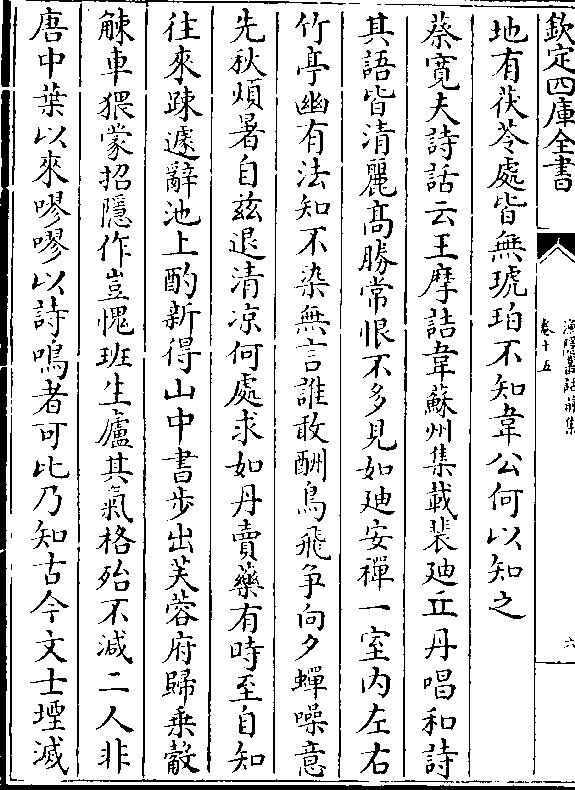 欽定四庫全書
漁隱叢話前集
卷十五
六
地有茯苓處皆無琥珀不知韋公何以知之
蔡寛夫詩話云王摩詰韋蘇州集載裴廸丘丹唱和詩
其語皆清麗髙勝常恨不多見如廸安禪一室内左右
竹亭幽有法知不染無言誰敢酬鳥飛争向夕蟬噪意
先秋煩暑自兹退清凉何處求如丹賣藥有時至自知
往來踈遽辭池上酌新得山中書步出芙蓉府歸乗觳
觫車猥蒙招隠作豈愧班生廬其氣格殆不減二人非
唐中葉以來嘐嘐以詩鳴者可比乃知古今文士堙滅